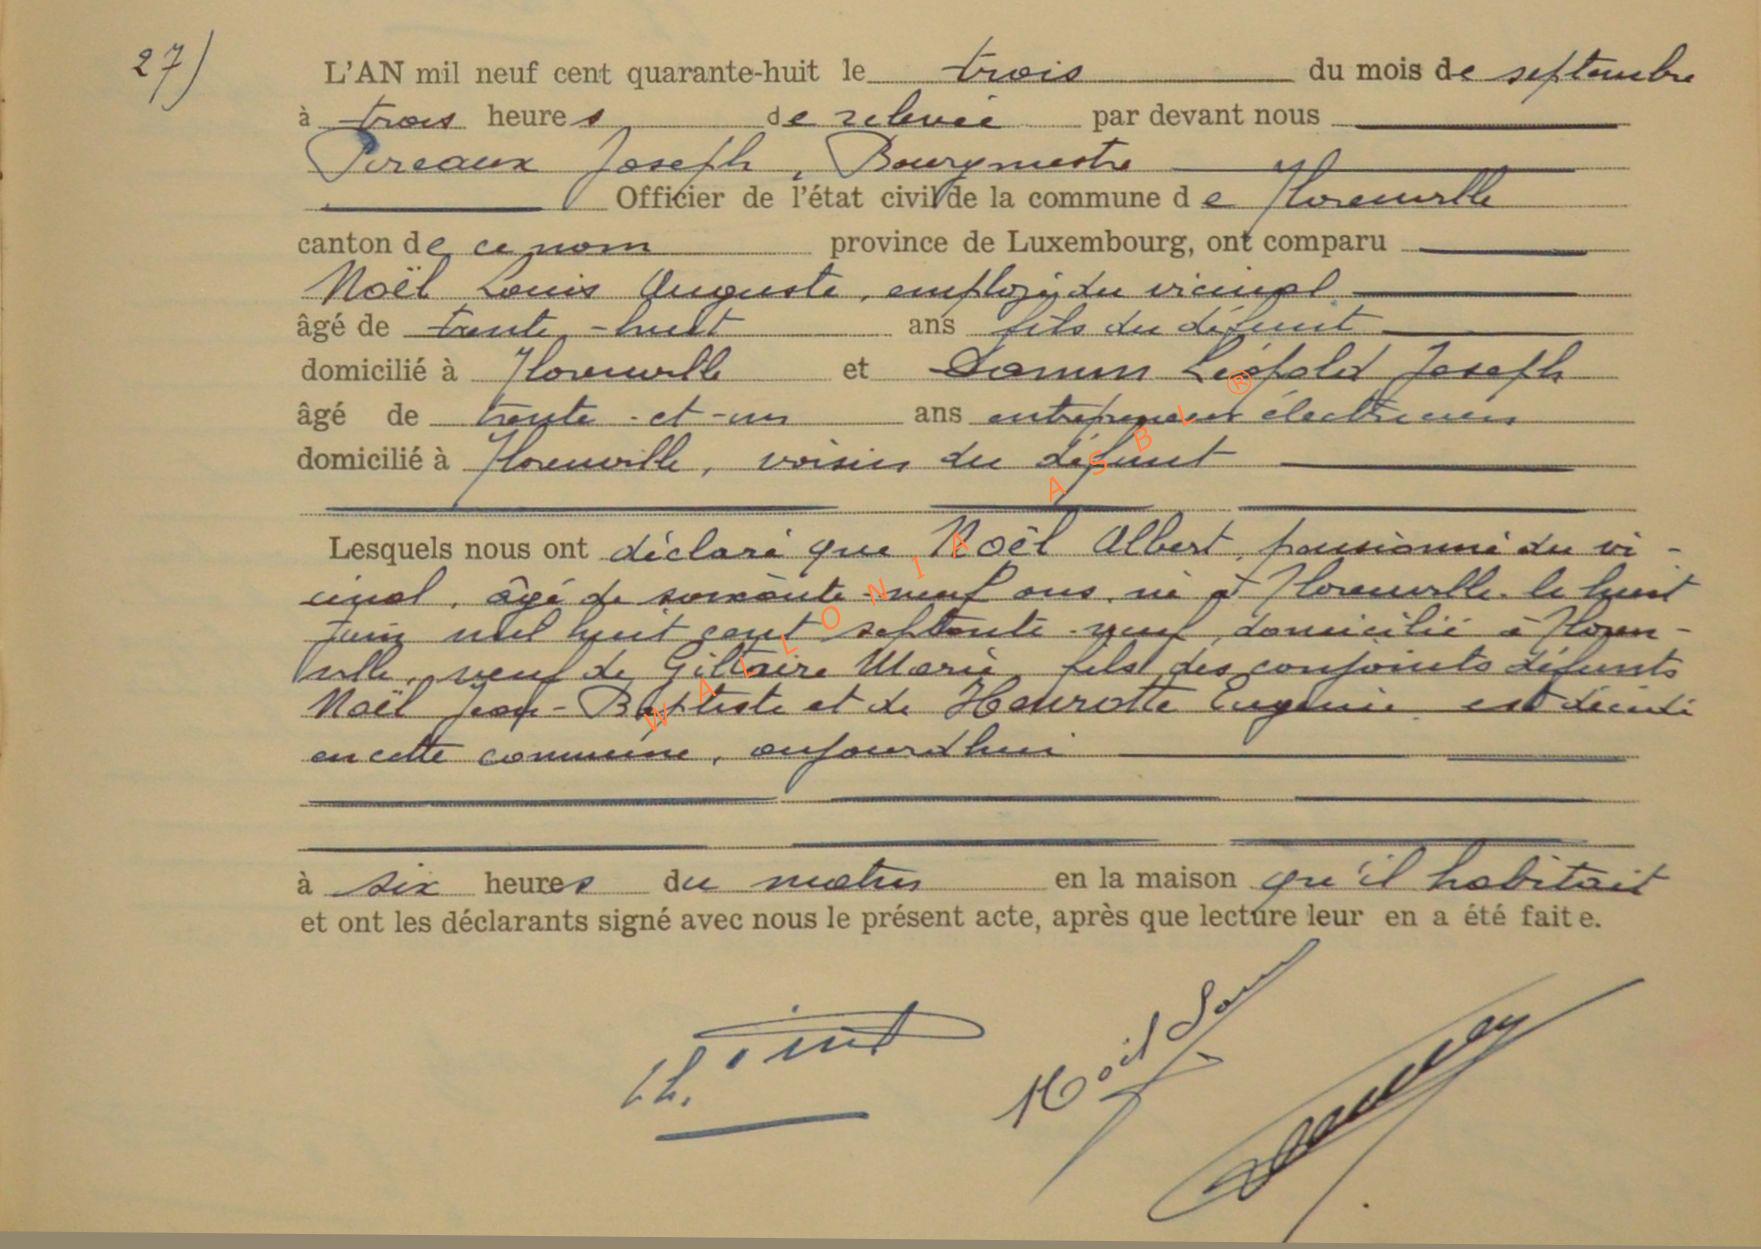 27)
L'AN mil neuf cent quarante-huit le trois du mois de septembre
à trois heures de relevée par devant nous
Pireaux Joseph, Bourgmestre
Officier de l'état civil de la commune de Florenville
canton de ce nom province de Luxembourg, ont comparu
Noël Louis Auguste, employé du vicinal
âgé de trente-huit ans fils du défunt
domicilié à Florenville et Léopold Joseph
âgé de trente-et-un ans entrepreneur électricien
domicilié à Florenville, voisin du défunt
Lesquels nous ont déclaré que Noël Albert, pensionné du vi-
cinal, âgé de soixante-neuf ans, né à Florenville le huit
juin mil huit cent septante-neuf, domicilié à Floren-
ville, veuf de Giltaire Marie, fils des conjoints défunts
Noël Jean-Baptiste et de Henrotte Eugénie est décédé
en cette commune, aujourd'hui
à six heures du matin en la maison qu'il habitait
et ont les déclarants signé avec nous le présent acte, après que lecture leur en a été faite.
Noël
WALLONIA ASBL ®